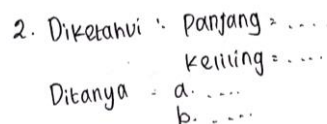 2. Diketahui : Panjang = ....
Keliling = ....
Ditanya : a. ....
b. ....